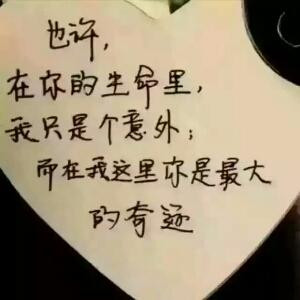 也许，
在你的生命里，
我只是个意外；
而在我这里你是最大
的奇迹